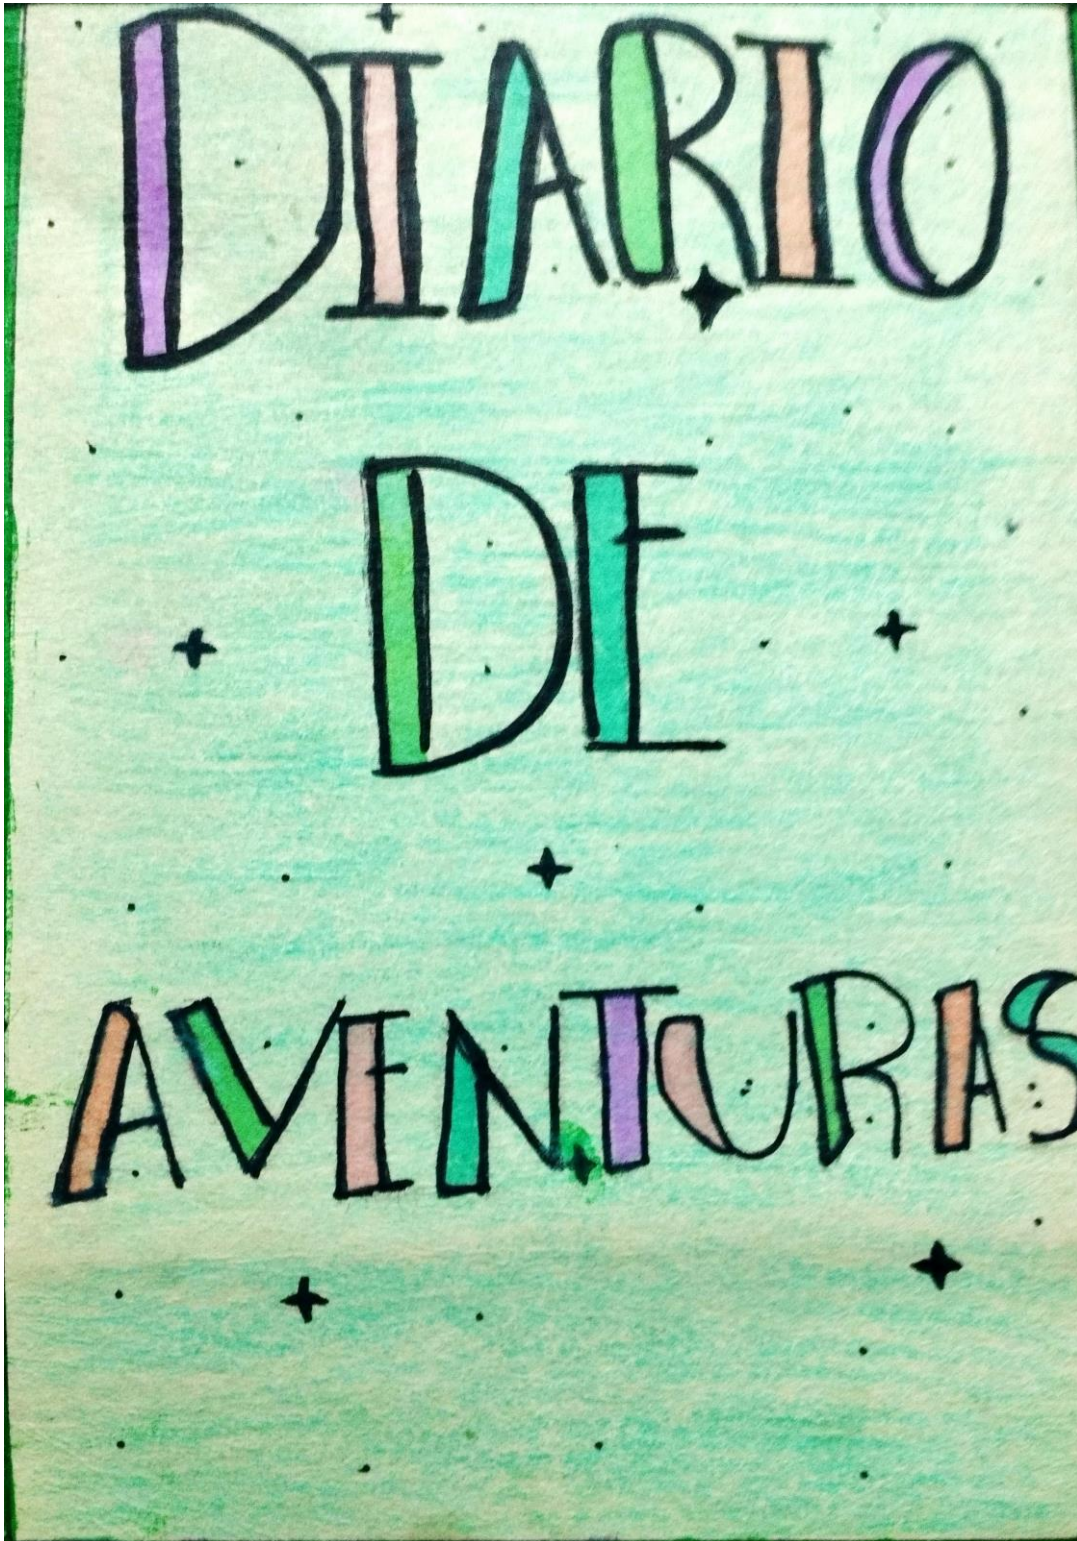 DIARIO
DE
AVENTURAS